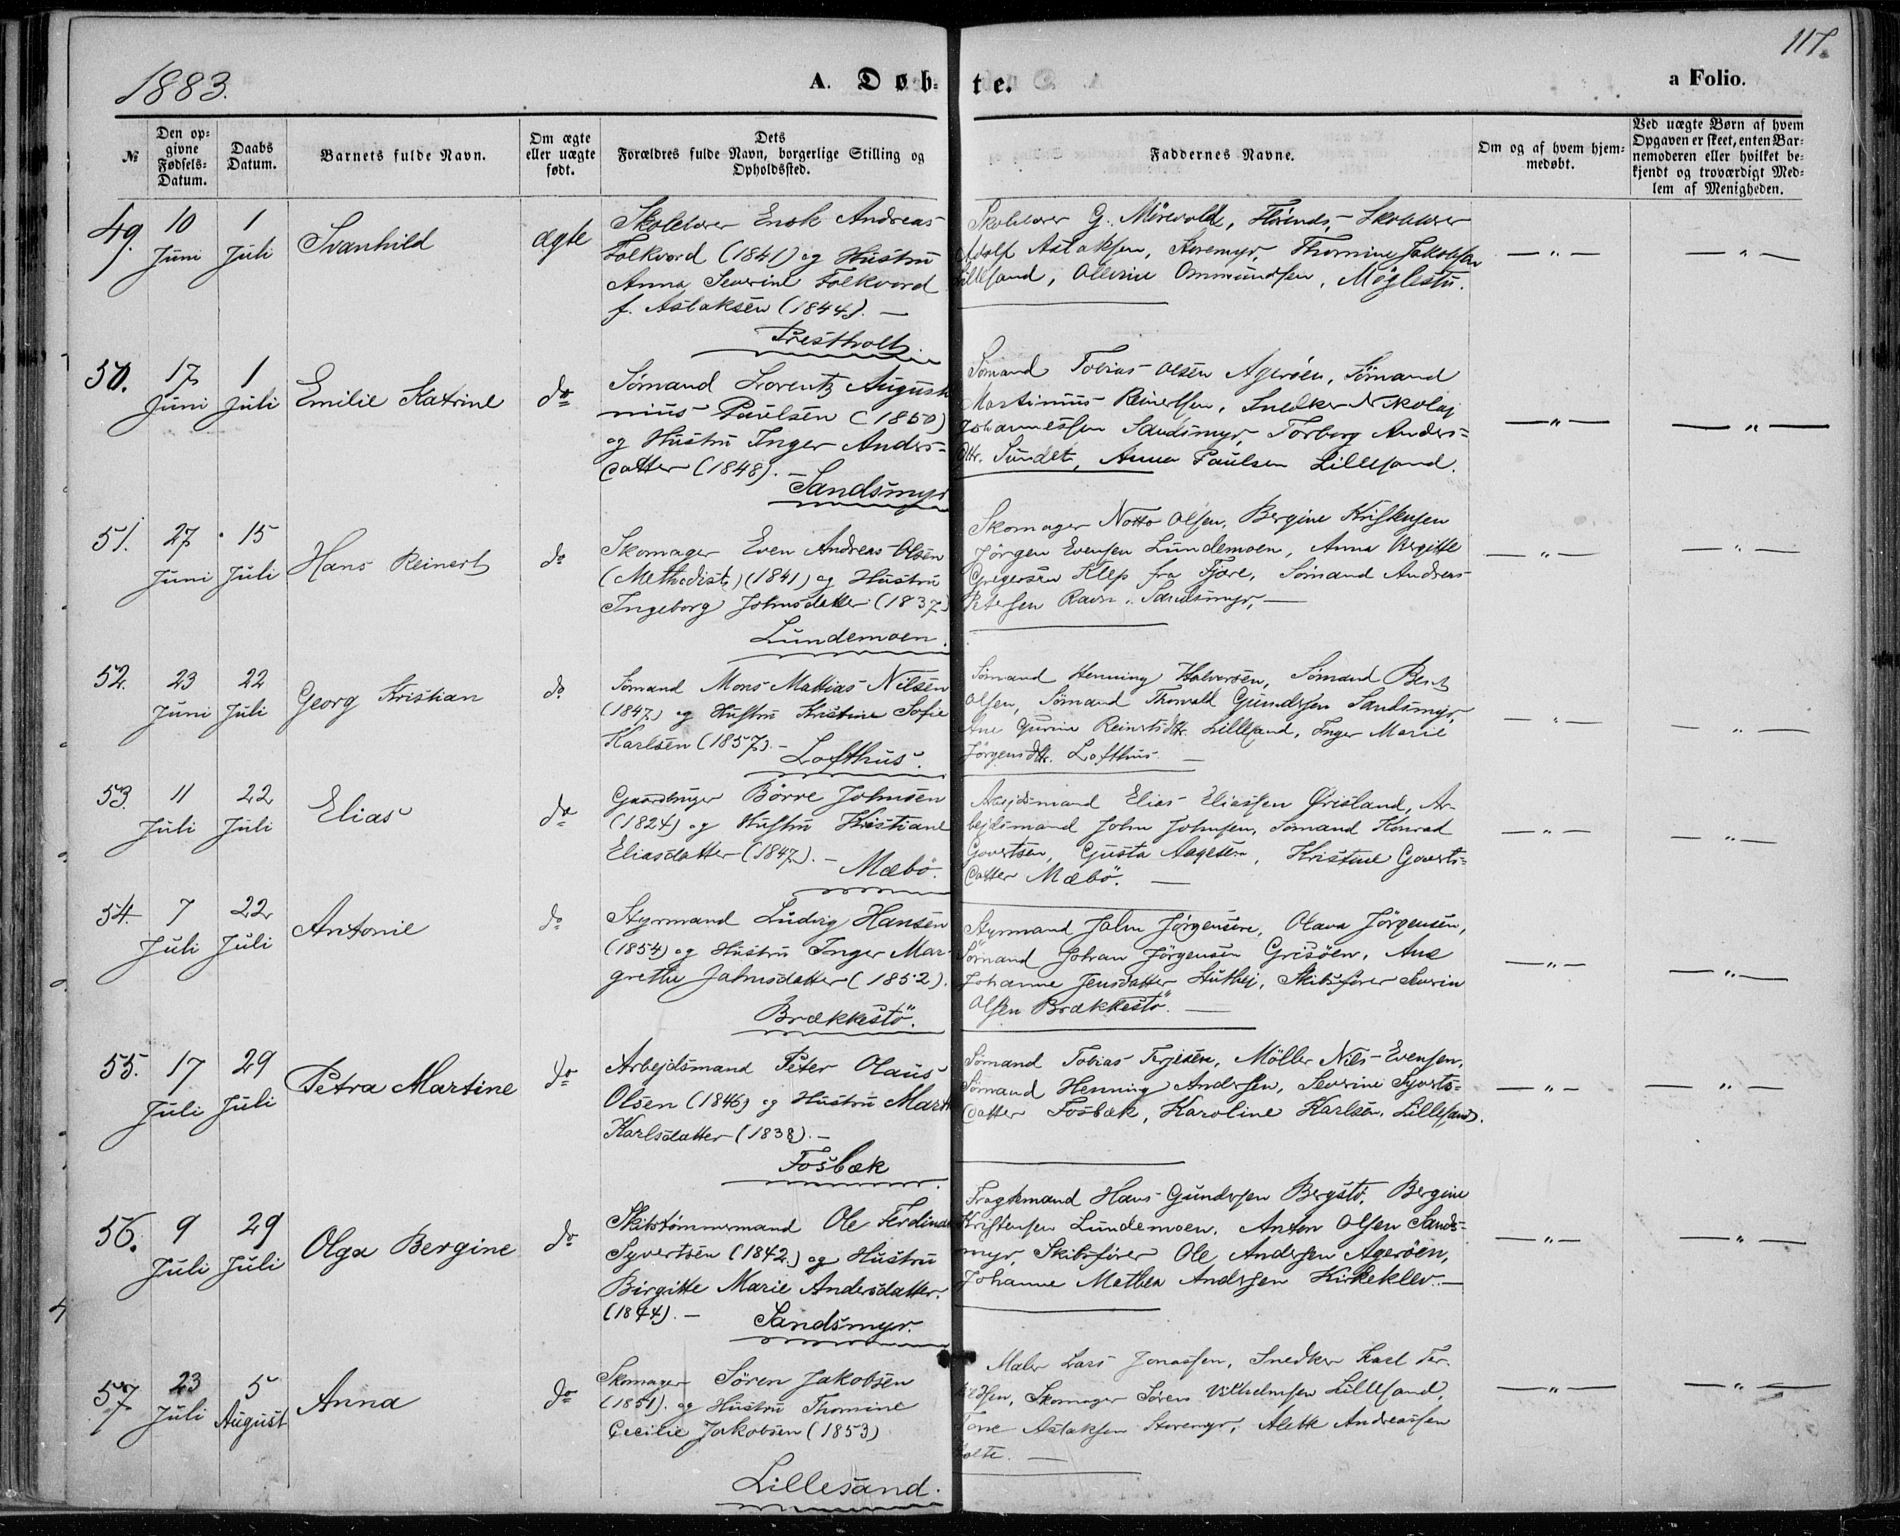 1883.
A. Døb-
te.
a Folio.
117.
№
Den op-
givne
Fødsels-
Datum.
Daabs
Datum.
Barnets fulde Navn.
Om ægte
eller uægte
født.
Dets
Forældres fulde Navn, borgerlige Stilling og
Opholdssted.
Faddernes Navne.
Om og af hvem hjem-
medøbt.
Ved uægte Børn af hvem
Opgaven er skeet, enten Bar-
nemoderen eller hvilket be-
kjendt og troværdigt Med-
lem af Menigheden.
49. 10 Juni
1 Juli
Svanhild
ægte
Skolelærer Enok Andreas
Folkvord (1841) og Hustru
Anna Severine Folkvord
f. Aslaksen (1844). —
Prestholt
Skolelærer G. Mörevold, Skolelærer
Adolf Aslaksen, Storemyr, Thomine Jakobsen
Lillesand, Olevine Ommundsen, Möglestu.
— " —
— " —
50. 17 Juni
1 Juli
Emilie Katrine
do
Sömand Lorentz Augusti
nius Paulsen (1850)
og Hustru Inger Anders-
datter (1848). —
Sandsmyr
Sömand Tobias Olsen Ageröen, Sömand
Martinius Reinertsen, Snedker Nikolaj
Johannessen Sandsmyr, Torborg Anders-
dtr. Sundet, Anna Paulsen Lillesand.
— " —
— " —
51. 27 Juni
15 Juli
Hans Reinert
do
Skomager Even Andreas Olsen
(Methodist) (1841) og Hustru
Ingeborg Johnsdatter (1837)
Lundemoen.
Skomager Notto Olsen, Bergine Kristensen
Jörgen Evensen Lundemoen, Anna Birgitte
Gregersen Klep fra Fjære, Sömand Andreas
Petersen Ravn, Sandsmyr, —
— " —
— " —
52. 23 Juni
22 Juli
Georg Kristian
do
Sömand Mons Mathias Nilsen
(1847) og Hustru Kristine Sofie
Karlsen (1857). —
Lofthus.
Sömand Henning Halvorsen, Sömand Bernt
Olsen, Sömand Thorvald Gundersen Sandsmyr,
Ane Gurine Reinertsdtr. Lillesand, Inger Marie
Jörgensdtr. Lofthus. —
— " —
— " —
53. 11 Juli
22 Juli
Elias
do
Gaardbruger Börre Johnsen
(1824) og Hustru Kristiane
Eliasdatter (1847). —
Mæbö.
Arbejdsmand Elias Eliassen Örisland, Ar-
bejdsmand John Johnsen, Sömand Konrad
Govertsen, Gusta Aagesen, Kristine Goverts-
datter Mæbö. —
— " —
— " —
54. 7 Juli
22 Juli
Antonie
do
Styrmand Ludvig Hansen
(1854) og Hustru Inger Mar-
grethe Jahnsdatter (1852).
Brækkestö.
Styrmand John Jörgensen, Olava Jörgensen,
Sömand Johan Jörgensen Grisöen, Ane
Johanne Jensdatter, Skibsförer Severin
Olsen Brækkestö. —
— " —
— " —
55. 17 Juli
29 Juli
Petra Martine
do
Arbejdsmand Peter Olaus
Olsen (1846) og Hustru Marte
Karlsdatter (1838). —
Fosbæk
Sömand Tobias Terjesen, Möller Nils Evensen,
Sömand Henning Andersen, Severine Syverts-
datter Fosbæk, Karoline Karlsen, Lillesand.
— " —
— " —
56. 9 Juli
29 Juli
Olga Bergine
do
Skibstömmermand Ole Ferdinan
Syvertsen (1842) og Hustru
Birgitte Marie Andersdatter.
(1844). —
Sandsmyr.
Fragtemand Hans Gundersen Bergstö, Bergine
Kristensen Lundemoen, Anton Olsen Sands-
myr, Skibsförer Ole Andersen Ageröen,
Johanne Mathea Andersen Kirkeklev. —
— " —
— " —
57. 23 Juli
5 August
Anna
do
Skomager Sören Jakobsen
(1851) og Hustru Thomine
Cecilie Jakobsen (1853)
Lillesand.
Maler Lars Jonassen, Snedker Karl Ter-
Skomager Sören Vilhelmsen Lillesand,
Tone Aslaksen Storemyr, Alette Andreassen
Holte. —
— " —
— " —